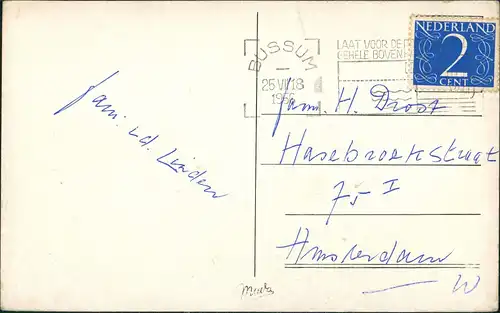 NEDERLAND
2
CENT
BUSSUM
25 VII 18
1956
LAAT VOOR DE
GEHELE BOVEN
Fam. v.d. Linden
Fam. H. Drost
Hasebroekstraat
75 I
Amsterdam
W